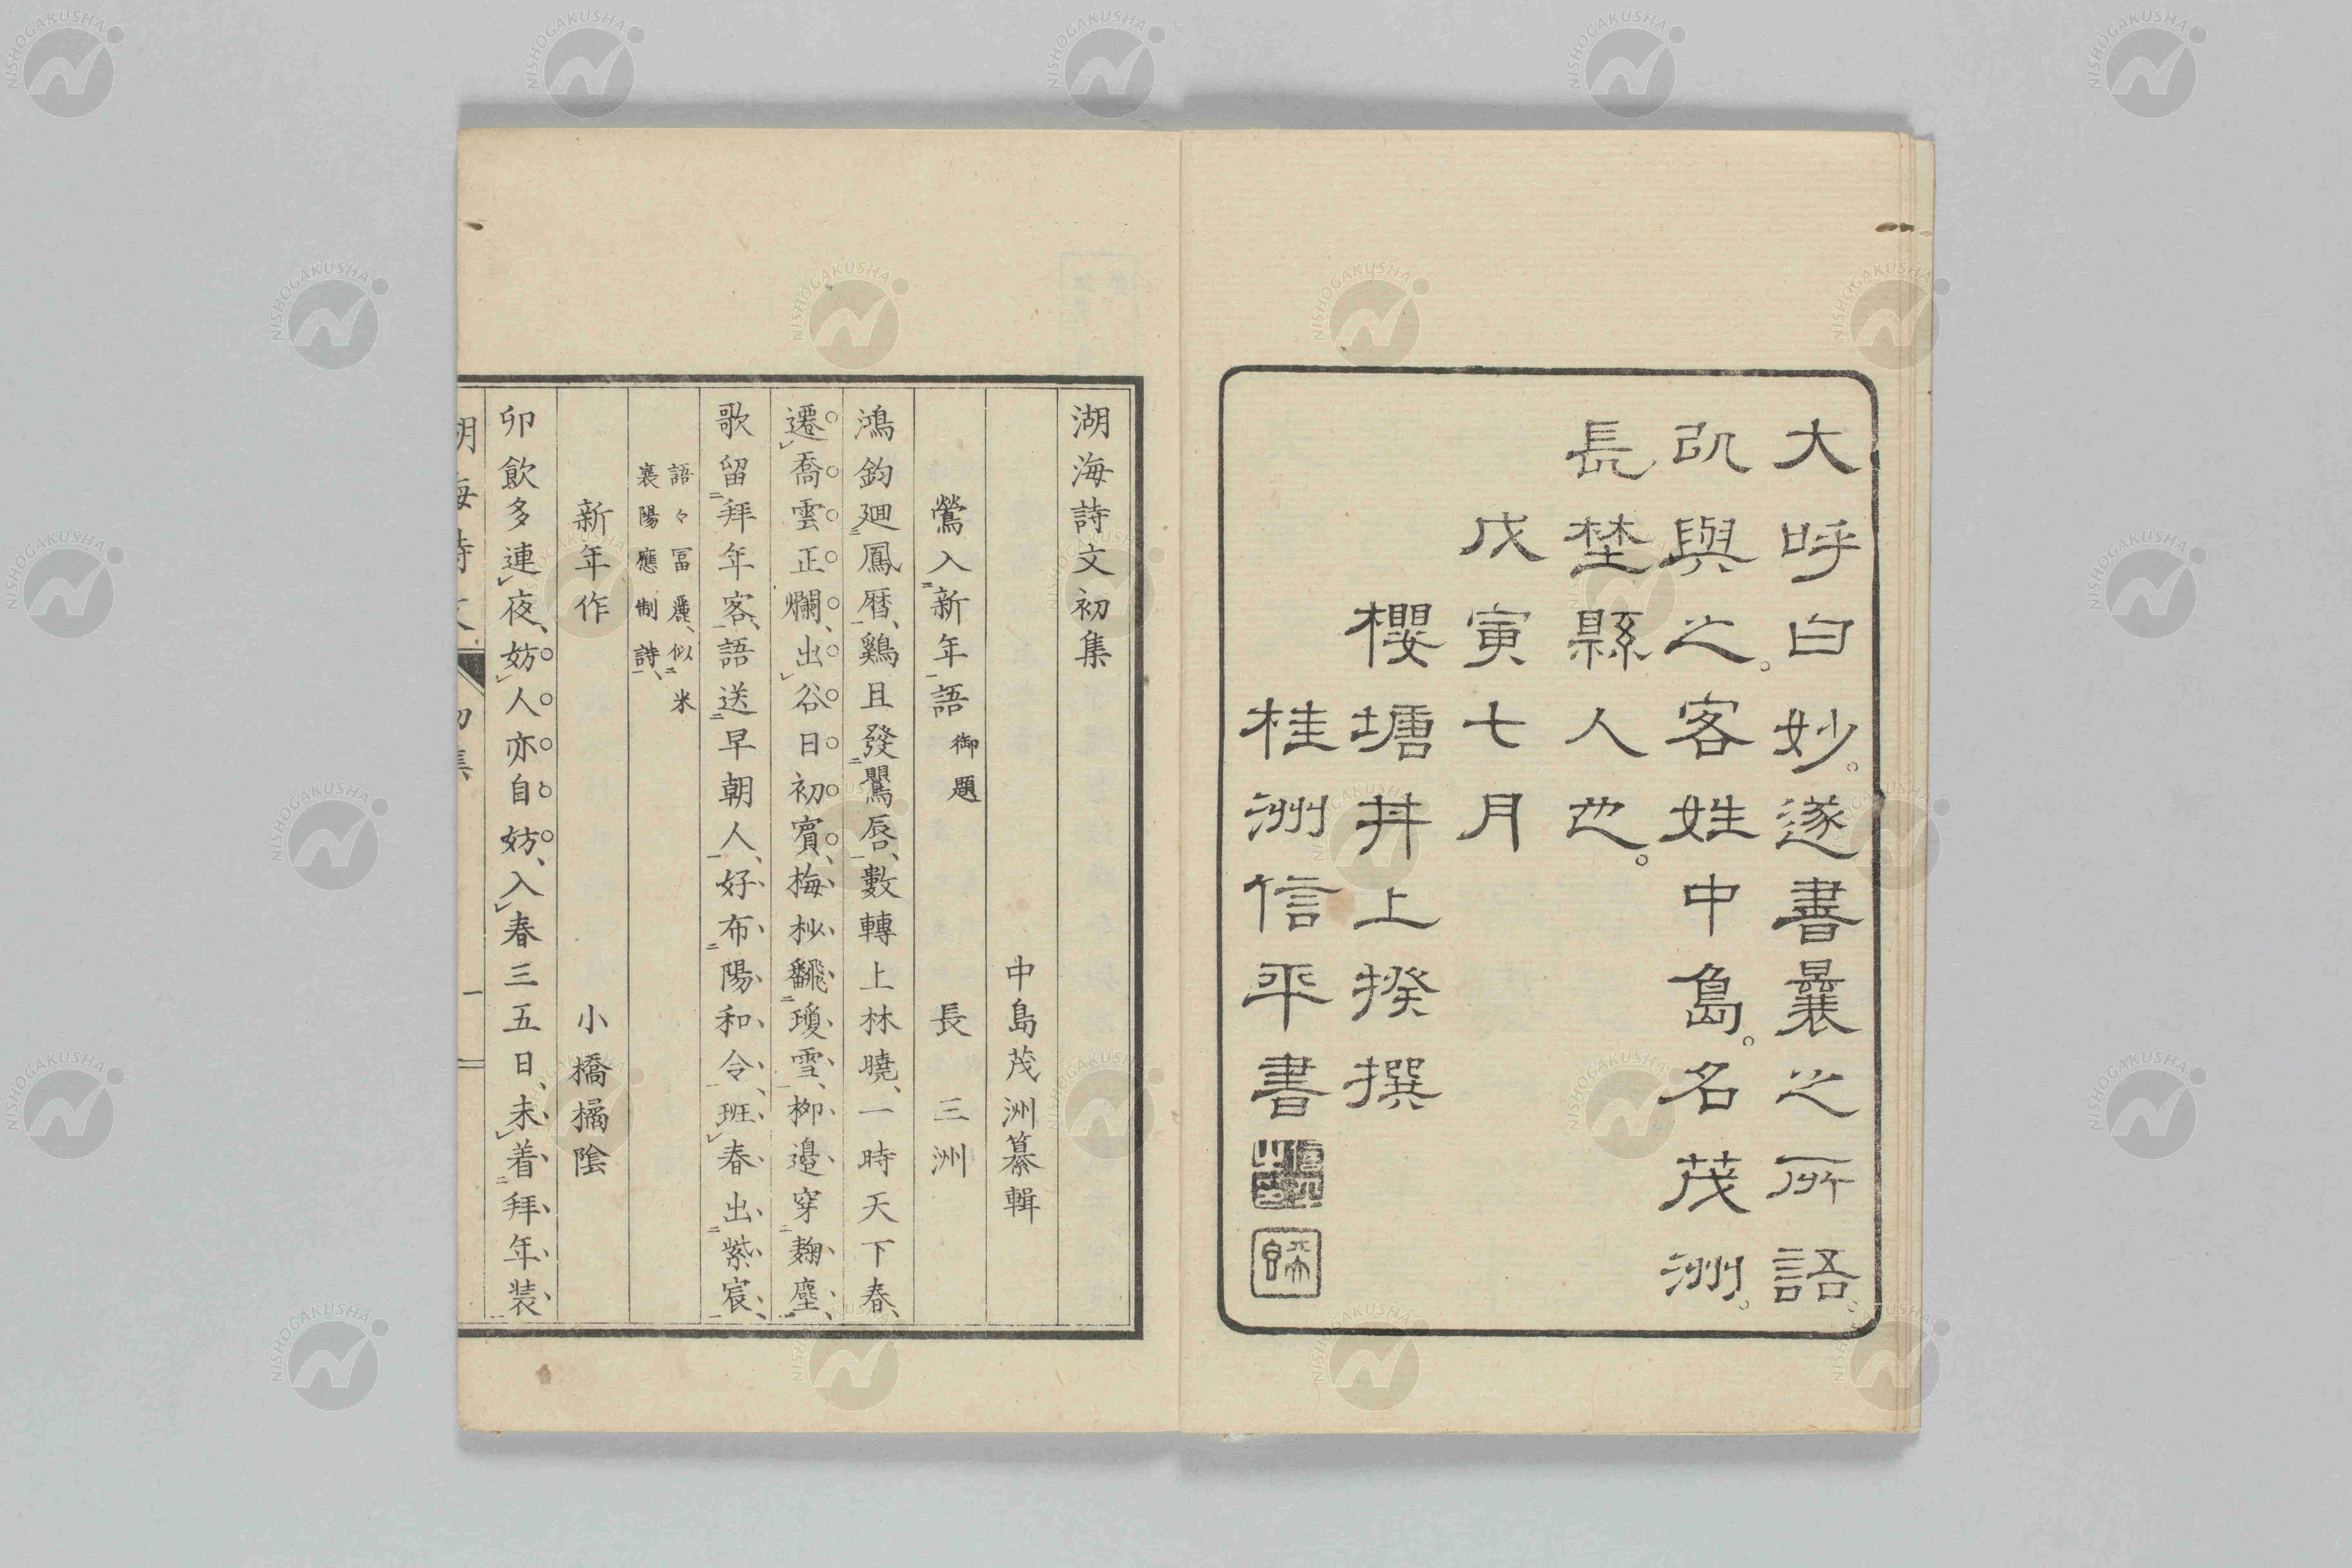 大呼白妙。遂書曩之所語
以與之。客姓中島。名茂洲。
長埜縣人也。
戊寅七月
櫻塘井上揆撰
桂洲信平書
湖海詩文初集
中島茂洲纂輯
鶯入二新年一語 御題 長三洲
鴻鈞廻二鳳暦一、鷄且發二鸎唇一、數轉上林曉、一時天下春、
遷喬雲正爛、出谷日初賓、梅杪飜二瓊雪一、栁邉穿二麹塵一、
歌留二拜年客一、語送二早朝人一、好布二陽和令一、班春出二紫宸一、
語々冨麗、似二米
襄陽應制詩一、
新年作 小橋橘陰
卯飲多連夜、妨人亦自妨、入春三五日、未着二拜年装一
湖海詩文 初集 一
NISHOGAKUSHA